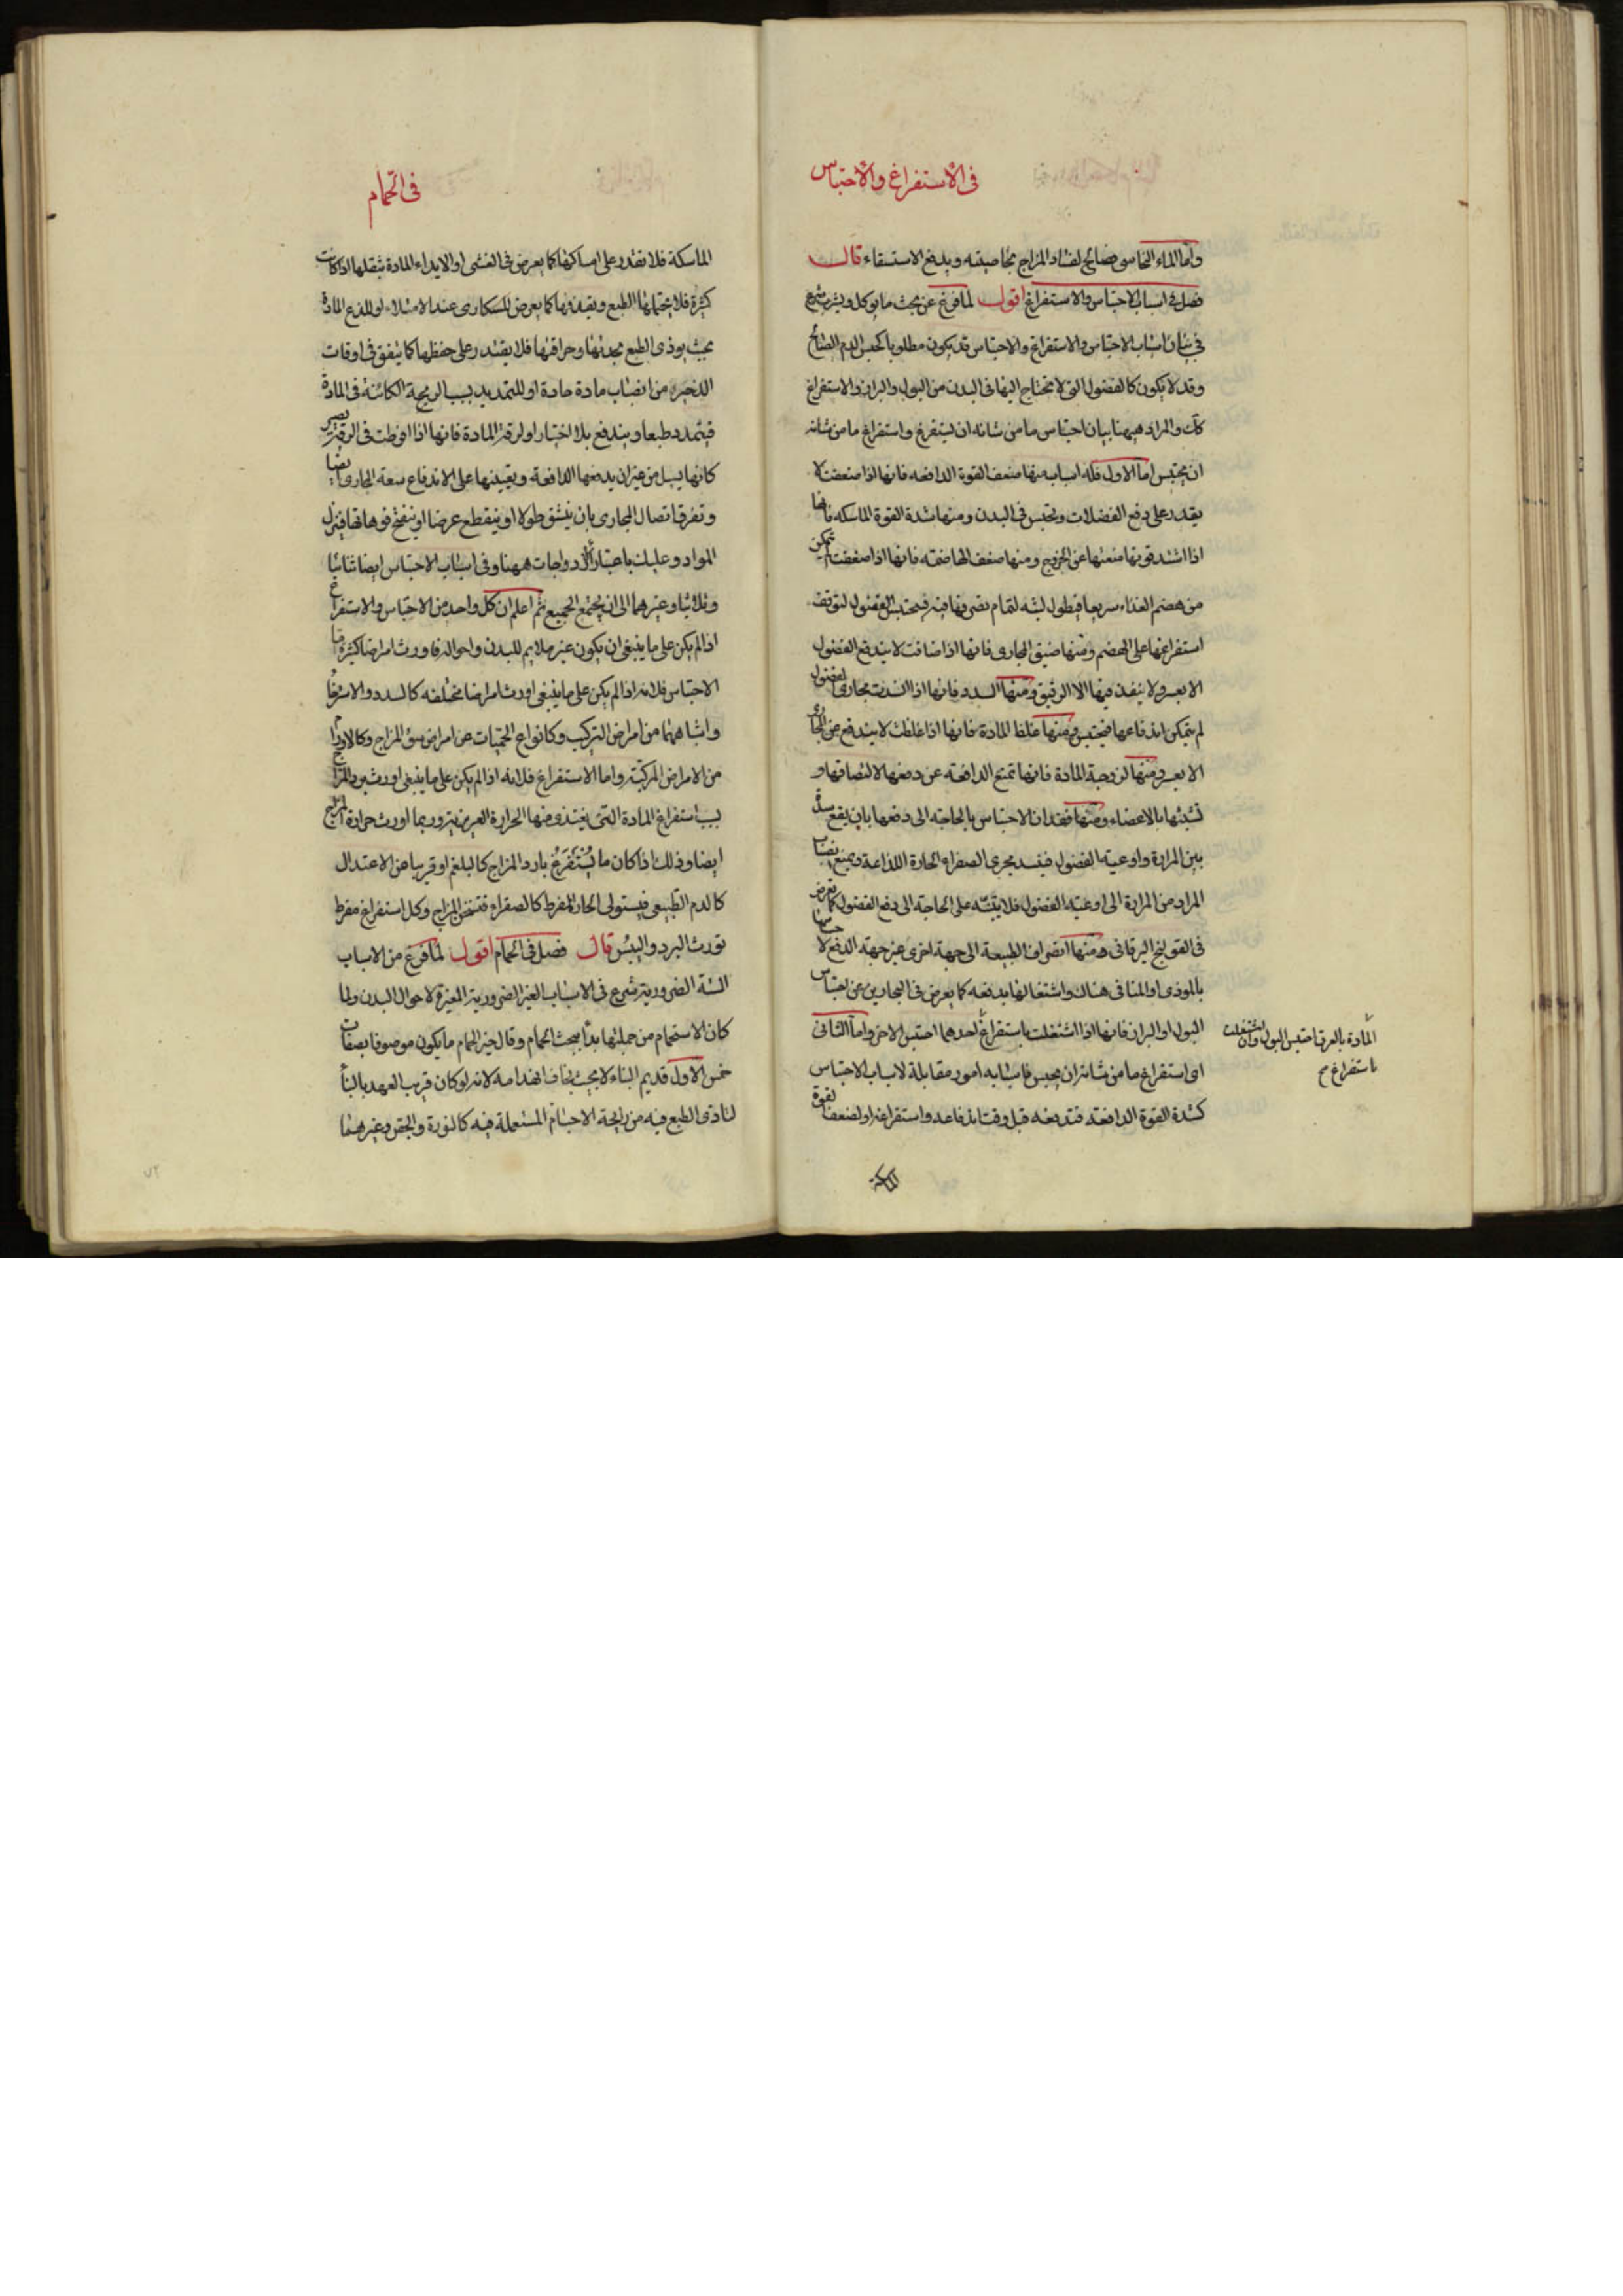 فى الاستفراغ والاحتباس
واما الماء النحاسى فصالح لفساد المزاج بخاصيته ويدفع الاستسقاء قال
فصل فى اسباب الاحتباس والاستفراغ اقول لما فرغ عن بحث ما يوكل ويشرب شرع
فى بيان اسباب الاحتباس والاستفراغ والاحتباس قد يكون مطلوبا كحبس الدم الصالح
وقد لا يكون كالفضول التى لا تحتاج اليها فى البدن من البول والبراز والاستفراغ
كك والمراد ههنا بيان احتباس ما من شانه ان يستفرغ واستفراغ ما من شانه
ان يحتبس اما الاول فله اسباب منها ضعف القوة الدافعه فانها اذا ضعفت لا
يقدر على دفع الفضلات وتحبس فى البدن ومنها شدة القوة الماسكه فانها
اذا اشتد قوتها منعتها عن الخروج ومنها ضعف الهاضمه فانها اذا ضعفت لم تتمكن
من هضم الغذاء سريعا فيطول لبثه لتمام تصرفها فيه فيحتبس الفضول لتوقف
استفراغها على الهضم ومنها ضيق المجارى فانها اذا ضاقت لا يندفع الفضول
الا بعسر ولا ينفذ فيها الا الرقيق ومنها السدد فانها اذا انسدت مجارى الفضول
لم يتمكن اندفاعها فيحتبس ومنها غلظ المادة فانها اذا غلظت لا يندفع عن المجارى
الا بعسر ومنها لزوجة المادة فانها تمنع الدافعة عن دفعها لالتصاقها و
تشبثها بالاعضاء ومنها فقدان الاحتباس بالحاجة الى دفعها بان يقع سدة
بين المرارة واوعية الفضول فيفسد مجرى الصفراء الحارة اللذاعة ويمنع انصباب
المرار من المرارة الى اوعية الفضول فلا يتنبه على الحاجة الى دفع الفضول كما تعرض
فى القولنج اليرقانى ومنها انصراف الطبيعة الى جهة اخرى غير جهة الدفع لاحساسها
بالموذى او المنافى هناك واشتغالها بدفعه كما يعرض فى البحارين عن احتباس
البول او البراز فانها اذا اشتغلت باستفراغ احدهما احتبس الاخر واما الثانى
اى استفراغ ما من شانه ان يحبس فاسبابه امور مقابلة لاسباب الاحتباس
كشدة القوة الدافعة فتدفعه قبل وقت اندفاعه واستفراغه او لضعف القوة
المادة بالعرق احتبس البول وان اشتغلت
باستفراغ صح
الماسكة
فى الحمام
الماسكة فلا تقدر على امساكها كما يعرض فى الغشى او الايذاء المادة بثقلها اذا كانت
كثيرة فلا يحتملها الطبع ويقذفها كما يعرض للسكارى عند الامتلاء او للذع المادة
بحيث يوذى الطبع بحدتها وحرافتها فلا يقتدر على حفظها كما يتفق فى اوقات
الذحير من انصباب مادة حادة او للتمديد بسبب الريحية الكائنة فى المادة
فيتمدد طبعا ويندفع بلا اختيار او لرقة المادة فانها اذا افرطت فى الرقة تصير
كانها يسيل من غير ان يدفعها الدافعة ويعينها على الاندفاع سعة المجارى ايضا
وتفرق اتصال المجارى بان ينشق طولا او ينقطع عرضا او ينفتح فوهاتها فينزل
المواد وعليك باعتبار الازدواجات ههنا وفى اسباب الاحتباس ايضا ثنائيا
وثلاثيا وغيرهما الى ان يجتمع الجميع ثم اعلم ان كل واحد من الاحتباس والاستفراغ
اذا لم يكن على ما ينبغى ان يكون غير ملايم للبدن واحواله فاورث امراضا كثيرة اما
الاحتباس فلانه اذا لم يكن على ما ينبغى اورث امراضا مختلفه كالسدد والاسترخاء
واشباههما من امراض التركيب وكانواع الحميات من امراض سوء المزاج وكالاورام
من الامراض المركبة واما الاستفراغ فلانه اذا لم يكن على ما ينبغى اورث برد المزاج
بسبب استفراغ المادة التى يغتذى منها الحرارة الغريزية وربما اورث حرارة المزاج
ايضا وذلك اذا كان ما يُسْتَفْرَغُ بارد المزاج كالبلغم او قريبا من الاعتدال
كالدم الطبيعى فيستولى الحار المفرط كالصفراء فتسخن المزاج وكل استفراغ مفرط
تورث البرد واليبس قال فصل فى الحمام اقول لما فرغ من الاسباب
الستة الضرورية شرع فى الاسباب الغير الضرورية المغيرة لاحوال البدن ولما
كان الاستحمام من جملتها بدأ ببحث الحمام وقال خير الحمام ما يكون موصوفا بصفات
خمس الاول قديم البناء لا بحيث يخاف انهدامه لانه لو كان قريب العهد بالبناء
لتاذى الطبع فيه من رايحة الاجسام المستعملة فيه كالنورة والجص وغيرهما
٧٢